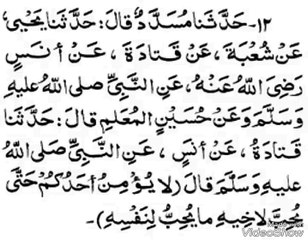 ١٢- حَدَّثَنَا مُسَدَّدٌ قَالَ: حَدَّثَنَا يَحْيَى
عَنْ شُعْبَةَ، عَنْ قَتَادَةَ، عَنْ أَنَسٍ
رَضِىَ اللهُ عَنْهُ، عَنِ النَّبِىِّ صلى اللهُ عليهِ
وَسَلَّمَ وَعَنْ حُسَيْنٍ الْمُعَلِّمِ قَالَ: حَدَّثَنَا
قَتَادَةُ، عَنْ أَنَسٍ، عَنِ النَّبِىِّ صلى اللهُ
عليهِ وَسَلَّمَ قَالَ (لَا يُؤْمِنُ أَحَدُكُمْ حَتَّى
يُحِبَّ لِأَخِيهِ مَا يُحِبُّ لِنَفْسِهِ)-
Made with
VideoShow